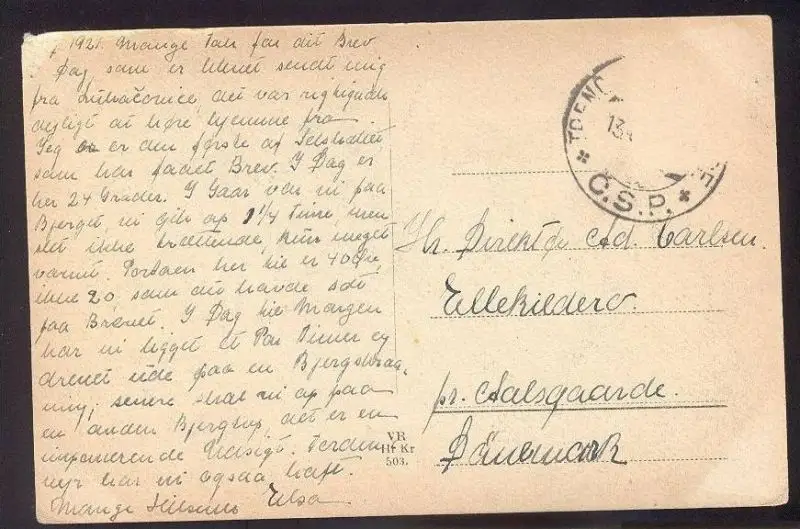 1921. Mange Tak for dit Brev
Dag, som er blevet sendt mig
fra Luhačovice, det var rigtig
dejligt at høre hjemme fra
Jeg er den første af Selskabet
som har faaet Brev. I Dag er
her 24 Grader. I Gaar var vi paa
Bjerget, vi gik op 1 1/4 Time, men
det ikke trættende, kun meget
varmt. Portoen her er 40
ikke 20, som du havde sat
paa Brevet. I Dag Morgen
har vi ligget et Par Timer og
drevet ude paa en Bjergskraa-
ning, senere skal vi op paa
en anden Bjergtop, det er en
imponerende Udsigt. Torden
vejr har vi ogsaa haft.
Mange Hilsener Elsa
VR
Hř Kr
503.
TRENČ
13.
C.S.P.
Hr. Direktør Ad. Carlsen.
Ellekildero.
pr. Aalsgaarde.
Dänemark